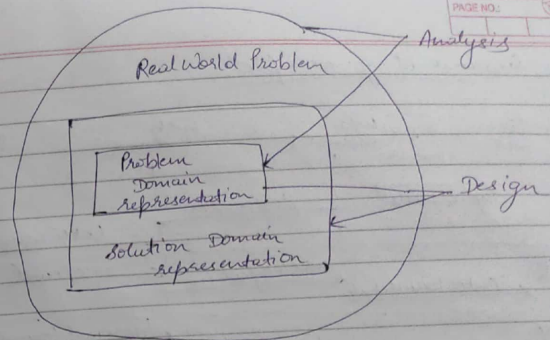 PAGE NO.:
Analysis
Real World Problem
Problem
Domain
representation
Design
Solution Domain
representation